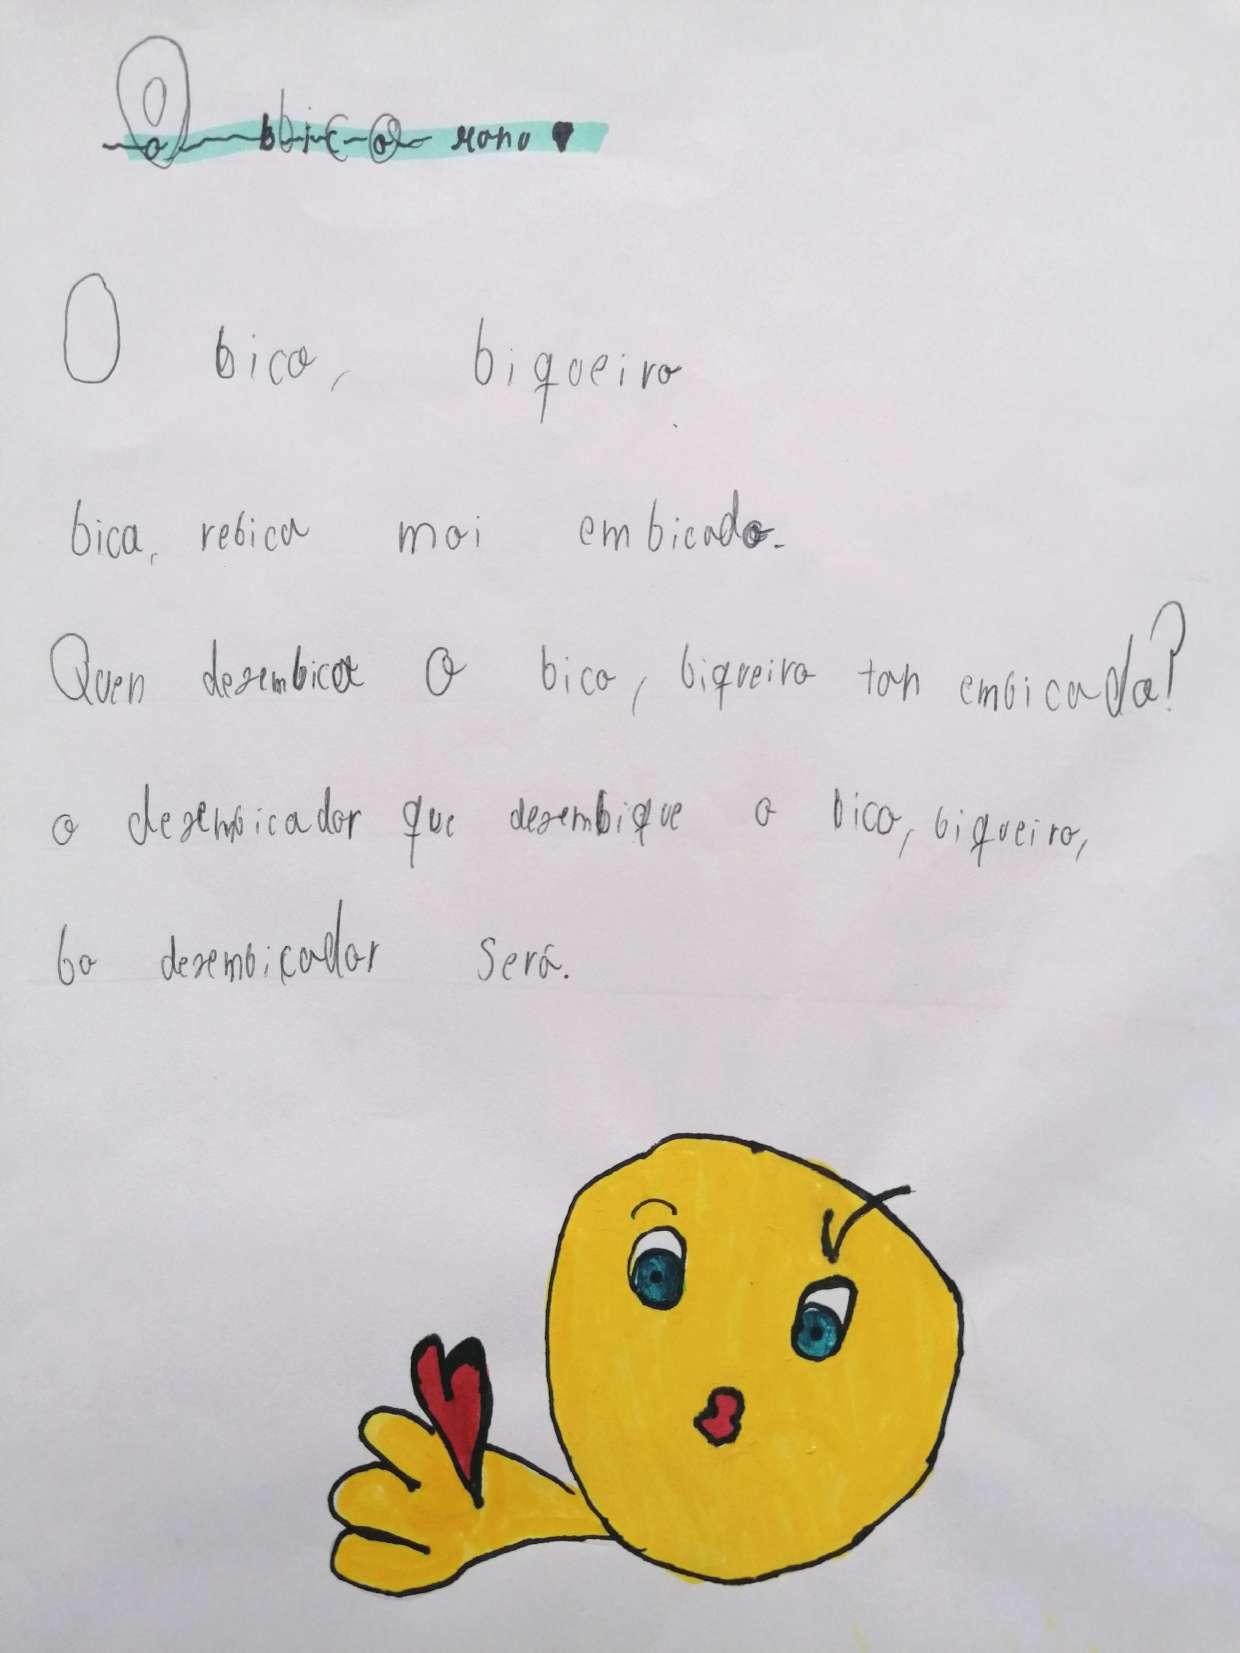 O bico
O bico, biqueiro
bica, rebica moi embicado.
Quen desembica o bico, biqueiro tan embicada?
o desembicador que desembique o bico, biqueiro,
bo desembicador será.